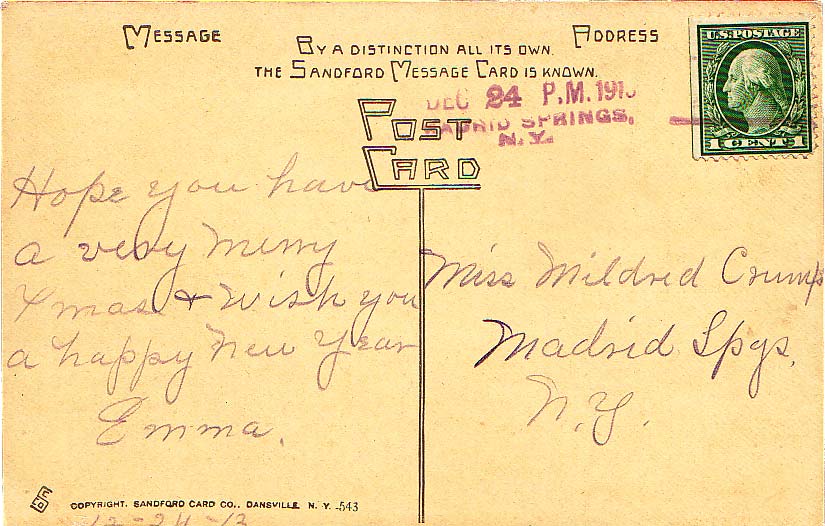 MESSAGE
BY A DISTINCTION ALL ITS OWN.
THE SANDFORD MESSAGE CARD IS KNOWN.
ADDRESS
U.S. POSTAGE
1 CENT 1
DEC 24 P.M. 191
MADRID SPRINGS,
N.Y.
POST
CARD
Hope you have
a very merry
Xmas + Wish you
a happy New Year
Emma.
Miss Mildred Crump
Madrid Spgs,
N.Y.
COPYRIGHT. SANDFORD CARD CO., DANSVILLE, N. Y. 543
12-24-13